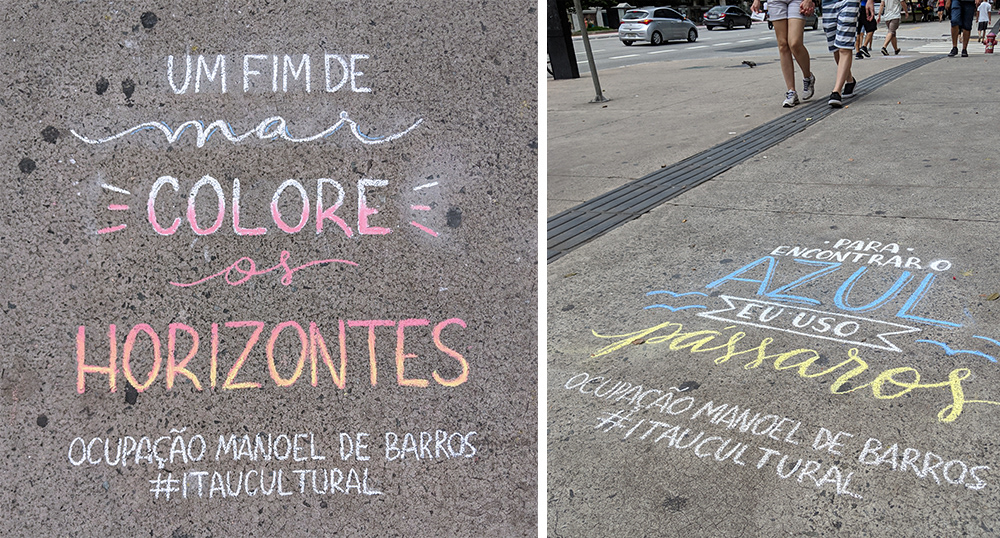 UM FIM DE
mar
COLORE
os
HORIZONTES
OCUPAÇÃO MANOEL DE BARROS
#ITAUCULTURAL
PARA
ENCONTRAR O
AZUL
EU USO
passaros
OCUPAÇÃO MANOEL DE BARROS
#ITAUCULTURAL